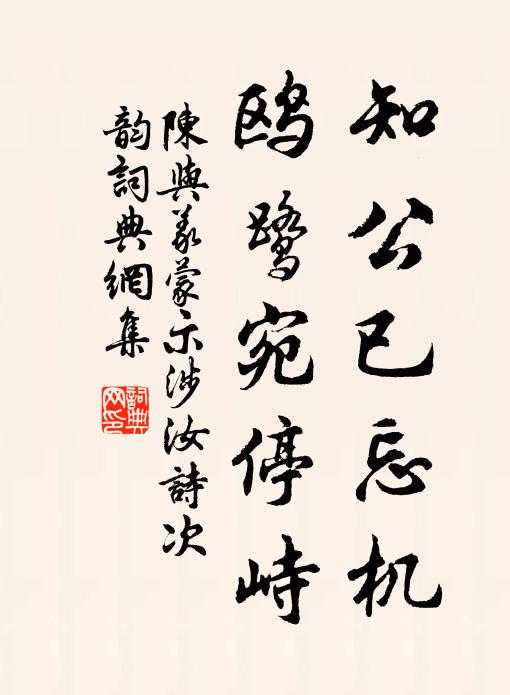 知公已忘机
鸥鹭宛停峙
陳與義蒙示涉汝詩次
韵詞典網集
詞典
网印